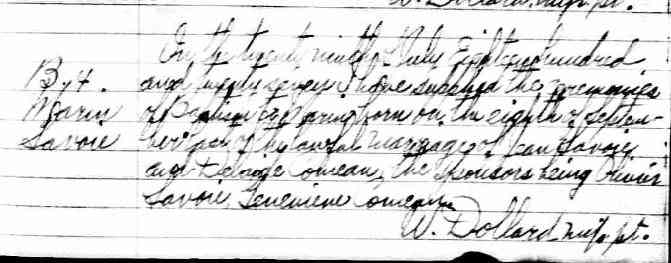 W. Dollard, miss. pt.
On the twenty ninth July Eighteen hundred
B. 4. and twenty seven I have supplied the ceremonies
Marin of Baptism to Marin born on the eighth of Septem-
Savoie ber last of the lawful marriage of Jean Savoie
and Comeau, the sponsors being Olivier
Savoie, Genevieve Comeau
W. Dollard pt.